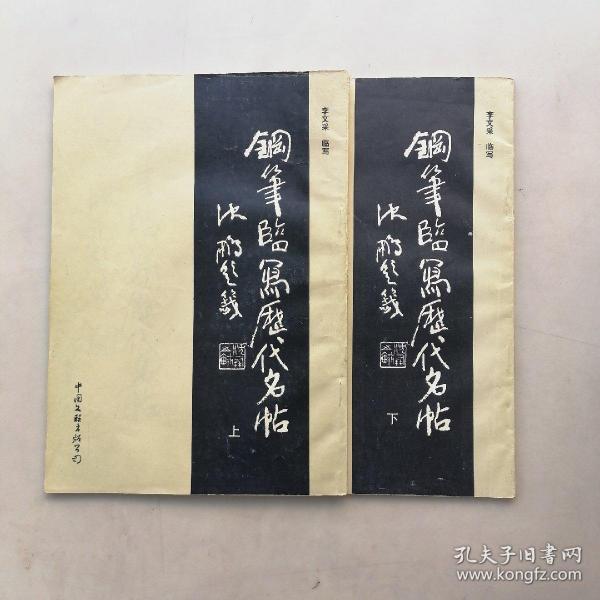 李文采 临写
鋼筆臨寫歷代名帖
沈鹏题签
上
中国文联出版公司
李文采 临写
鋼筆臨寫歷代名帖
沈鹏题签
下
孔夫子旧书网
www.kongfz.com